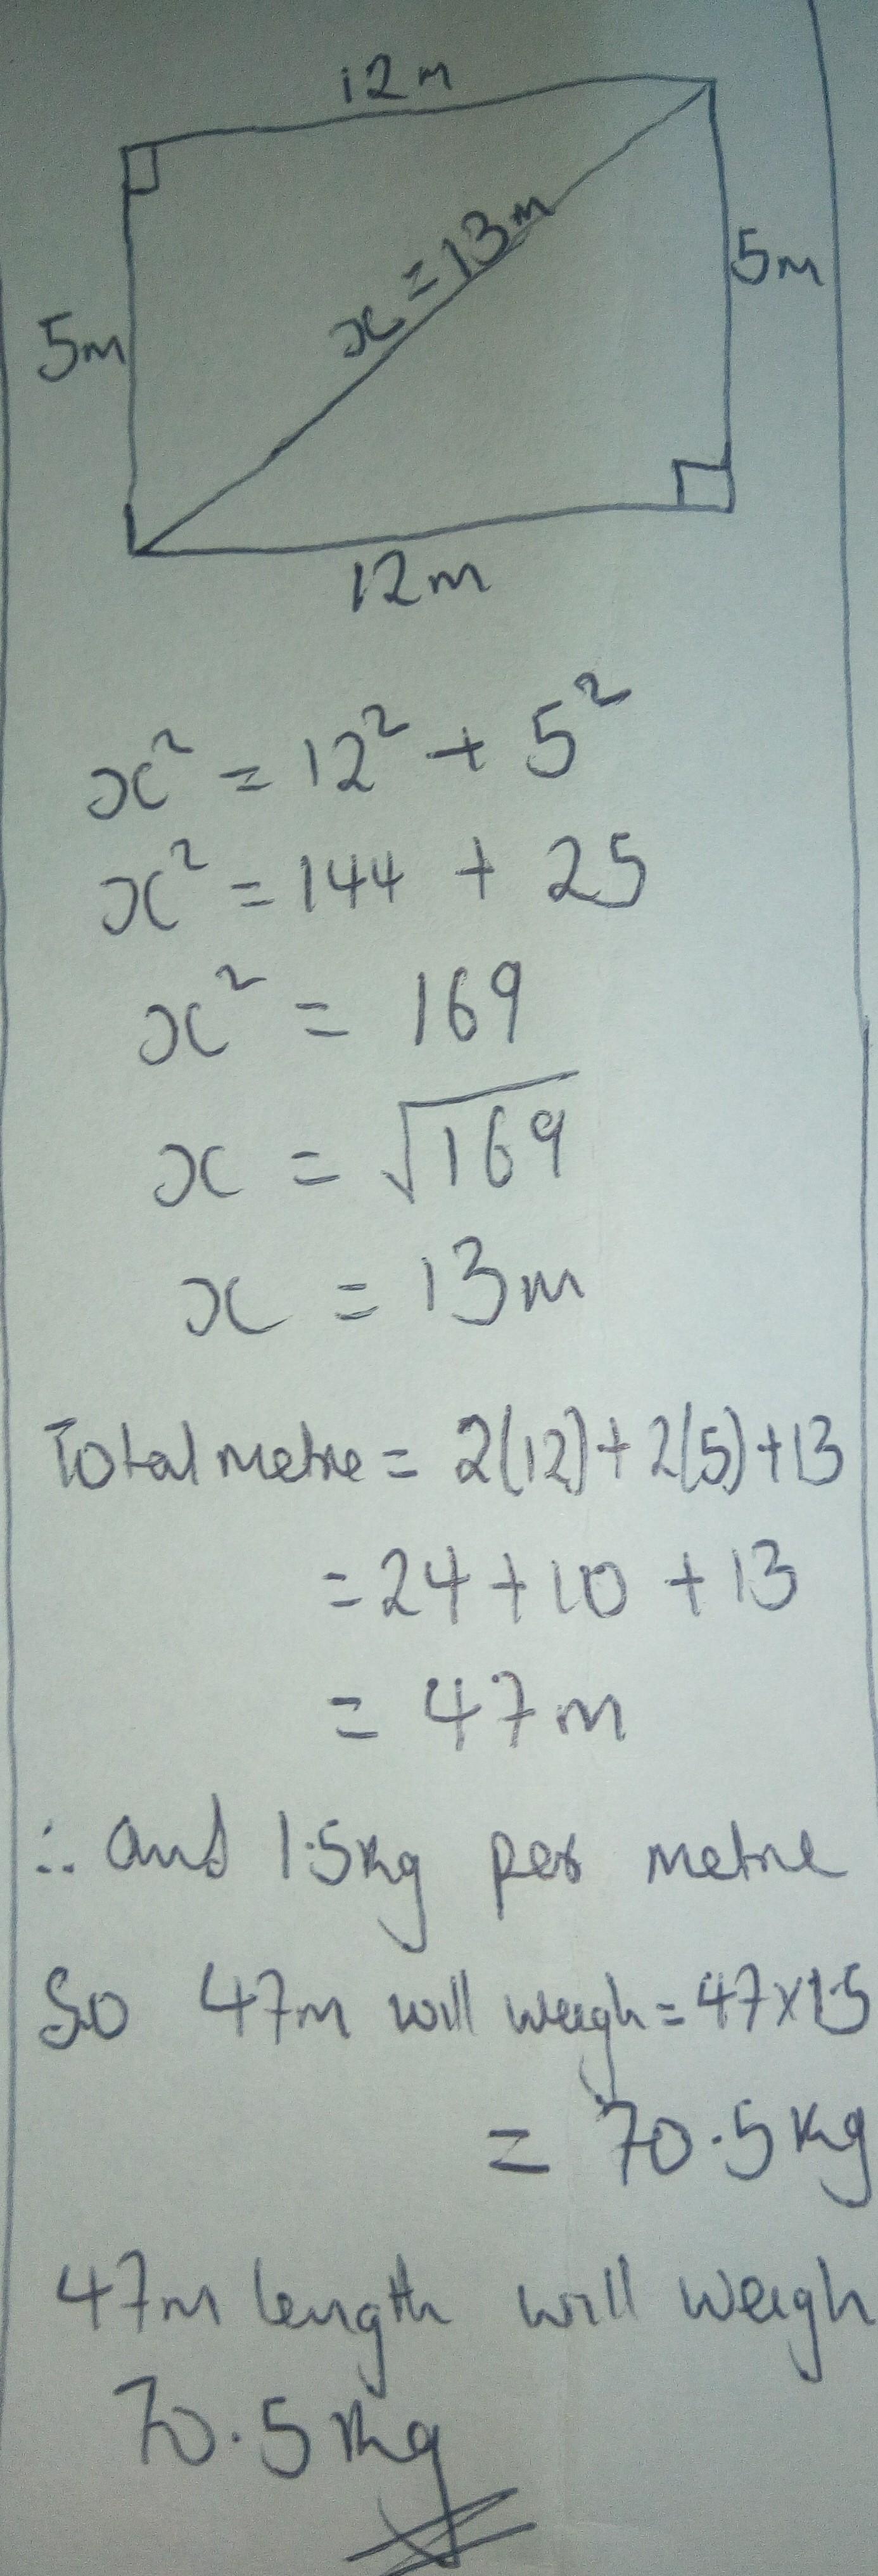 12m
x = 13m
5m
5m
12m
x² = 12² + 5²
x² = 144 + 25
x² = 169
x = √169
x = 13m
Total metre = 2(12) + 2(5) + 13
= 24 + 10 + 13
= 47m
∴ and 1.5kg per metre
So 47m will weigh = 47 x 1.5
= 70.5kg
47m length will weigh
70.5kg